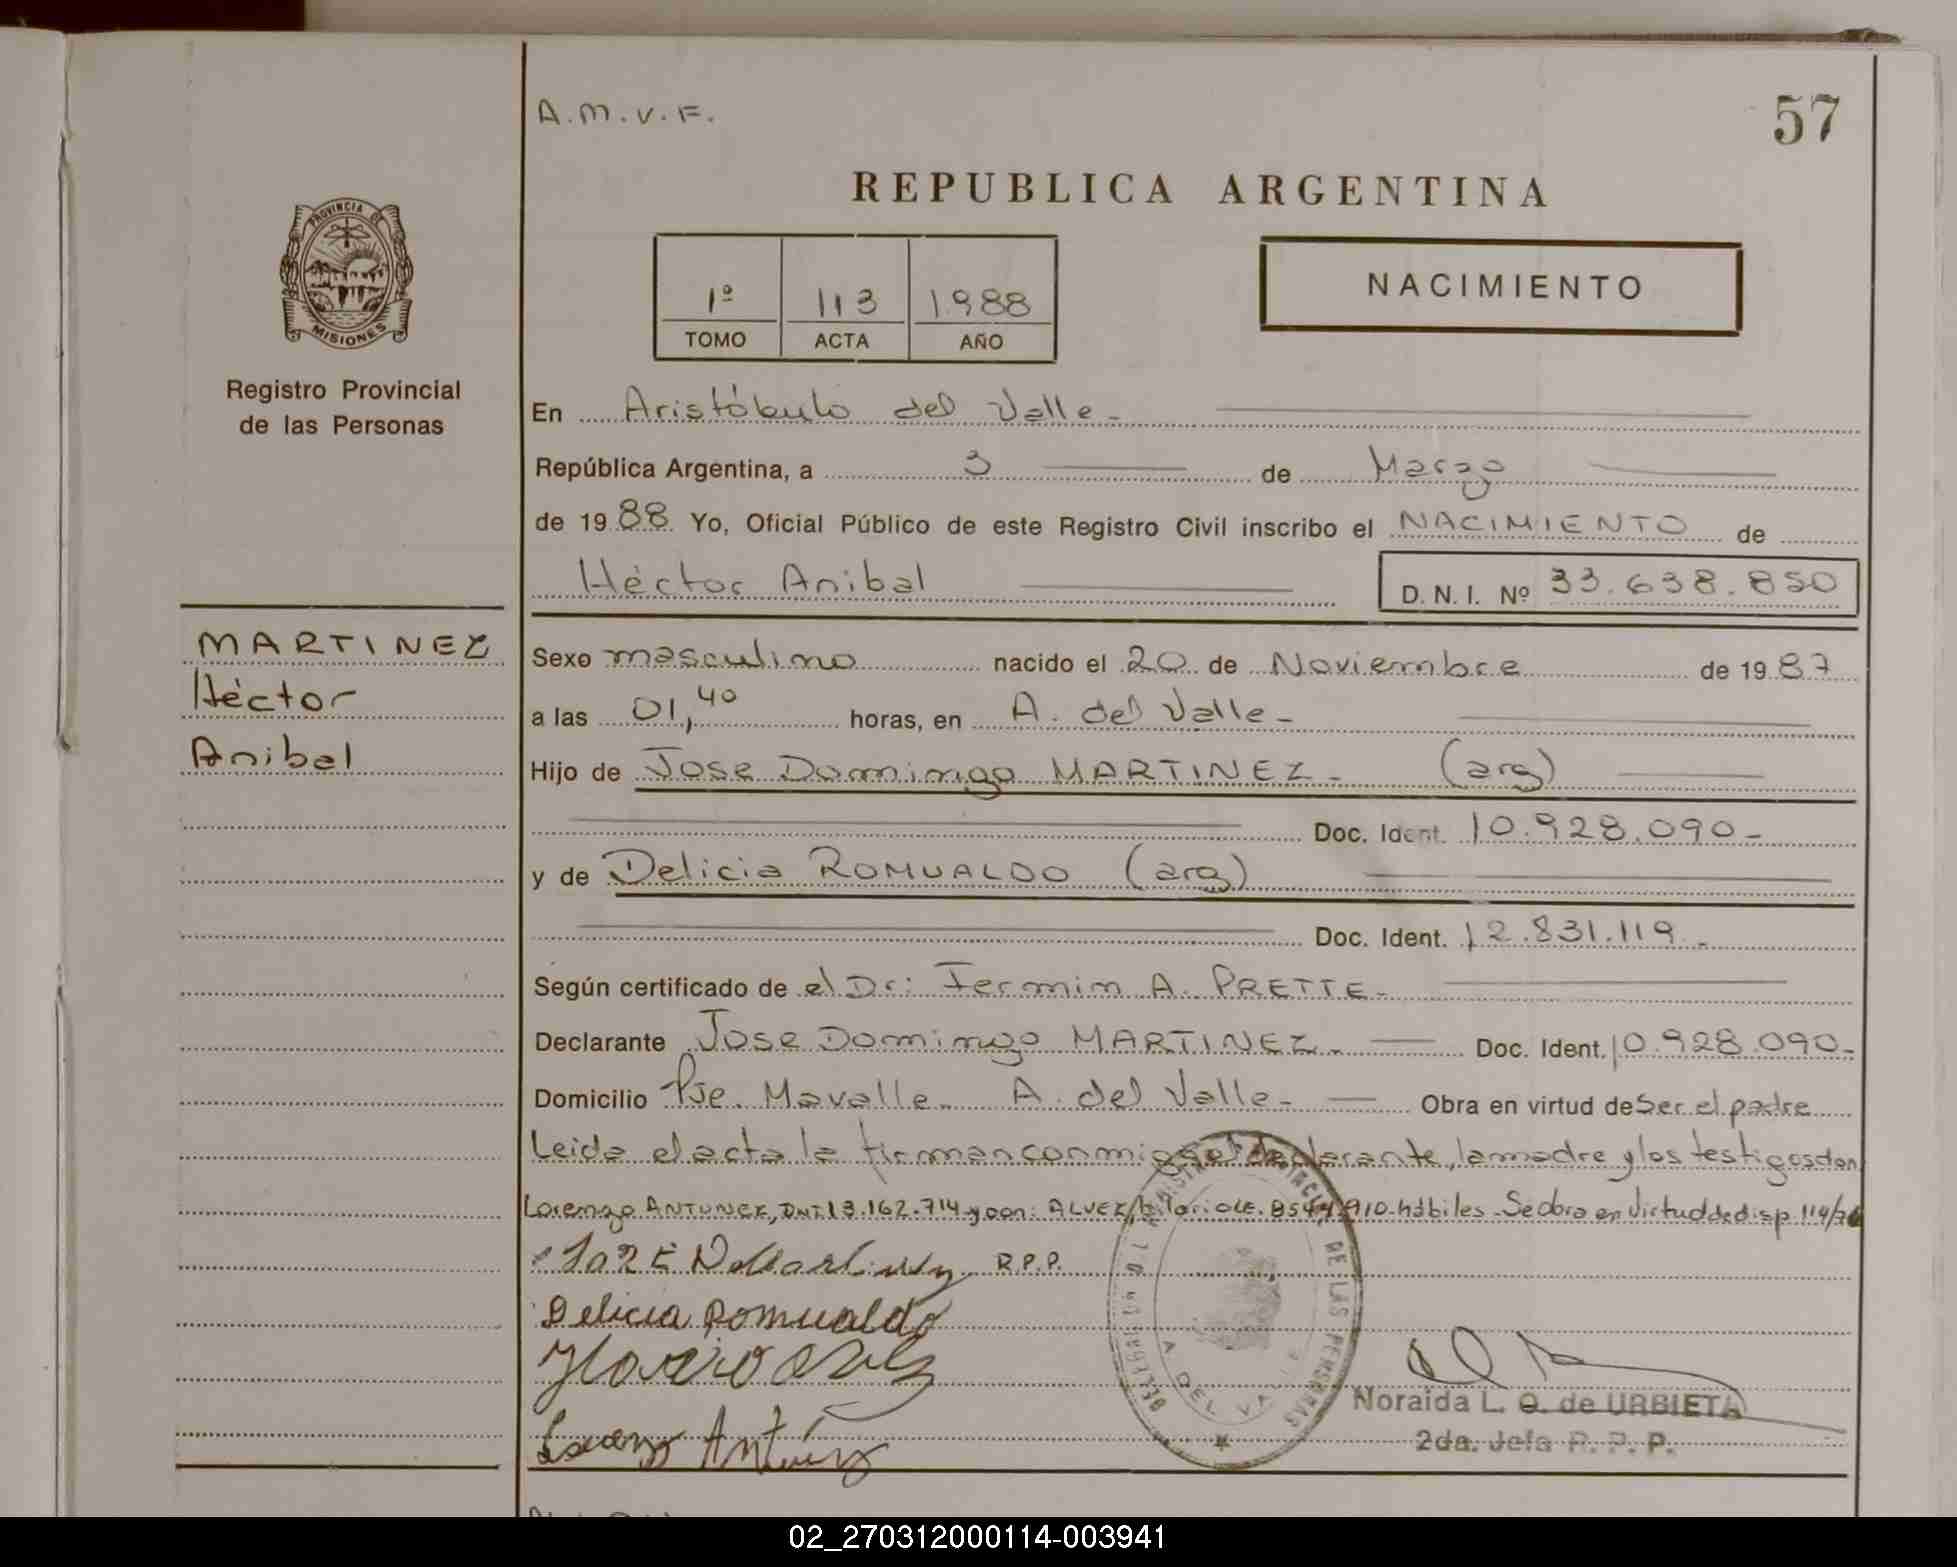 A.M.V.F.
57
REPUBLICA ARGENTINA
PROVINCIA DE
MISIONES
1º 113 1988
TOMO ACTA AÑO
NACIMIENTO
Registro Provincial
de las Personas
En Aristóbulo del Valle-
República Argentina, a 3 de Marzo
de 1988 Yo, Oficial Público de este Registro Civil inscribo el NACIMIENTO de
Héctor Anibal D. N. I. Nº 33.638.850
MARTINEZ
Héctor
Anibal
Sexo masculino nacido el 20 de Noviembre de 1987
a las 01,40 horas, en A. del Valle-
Hijo de Jose Domingo MARTINEZ- (arg)
Doc. Ident. 10.928.090-
y de Delicia ROMUALDO (arg)
Doc. Ident. 12.831.119-
Según certificado de el Dr: Fermin A. PRETTE-
Declarante Jose Domingo MARTINEZ- Doc. Ident. 10.928.090-
Domicilio Pje. Mavalle- A. del Valle- Obra en virtud de Ser el padre
Leida el acta la firman conmigo el declarante, la madre y los testigos don
Lorenzo ANTUNEZ, DNI 13.162.714 y don: ALVEZ, hilario LE. 8544910 hábiles - Se obra en virtud de disp 114/
R.P.P.
Delicia Romualdo
Lorenzo Antúnez
DE LAS PERSONAS
A. DEL VALLE
Noraida L. O. de URBIETA
2da. Jefa R. P. P.
02_270312000114-003941